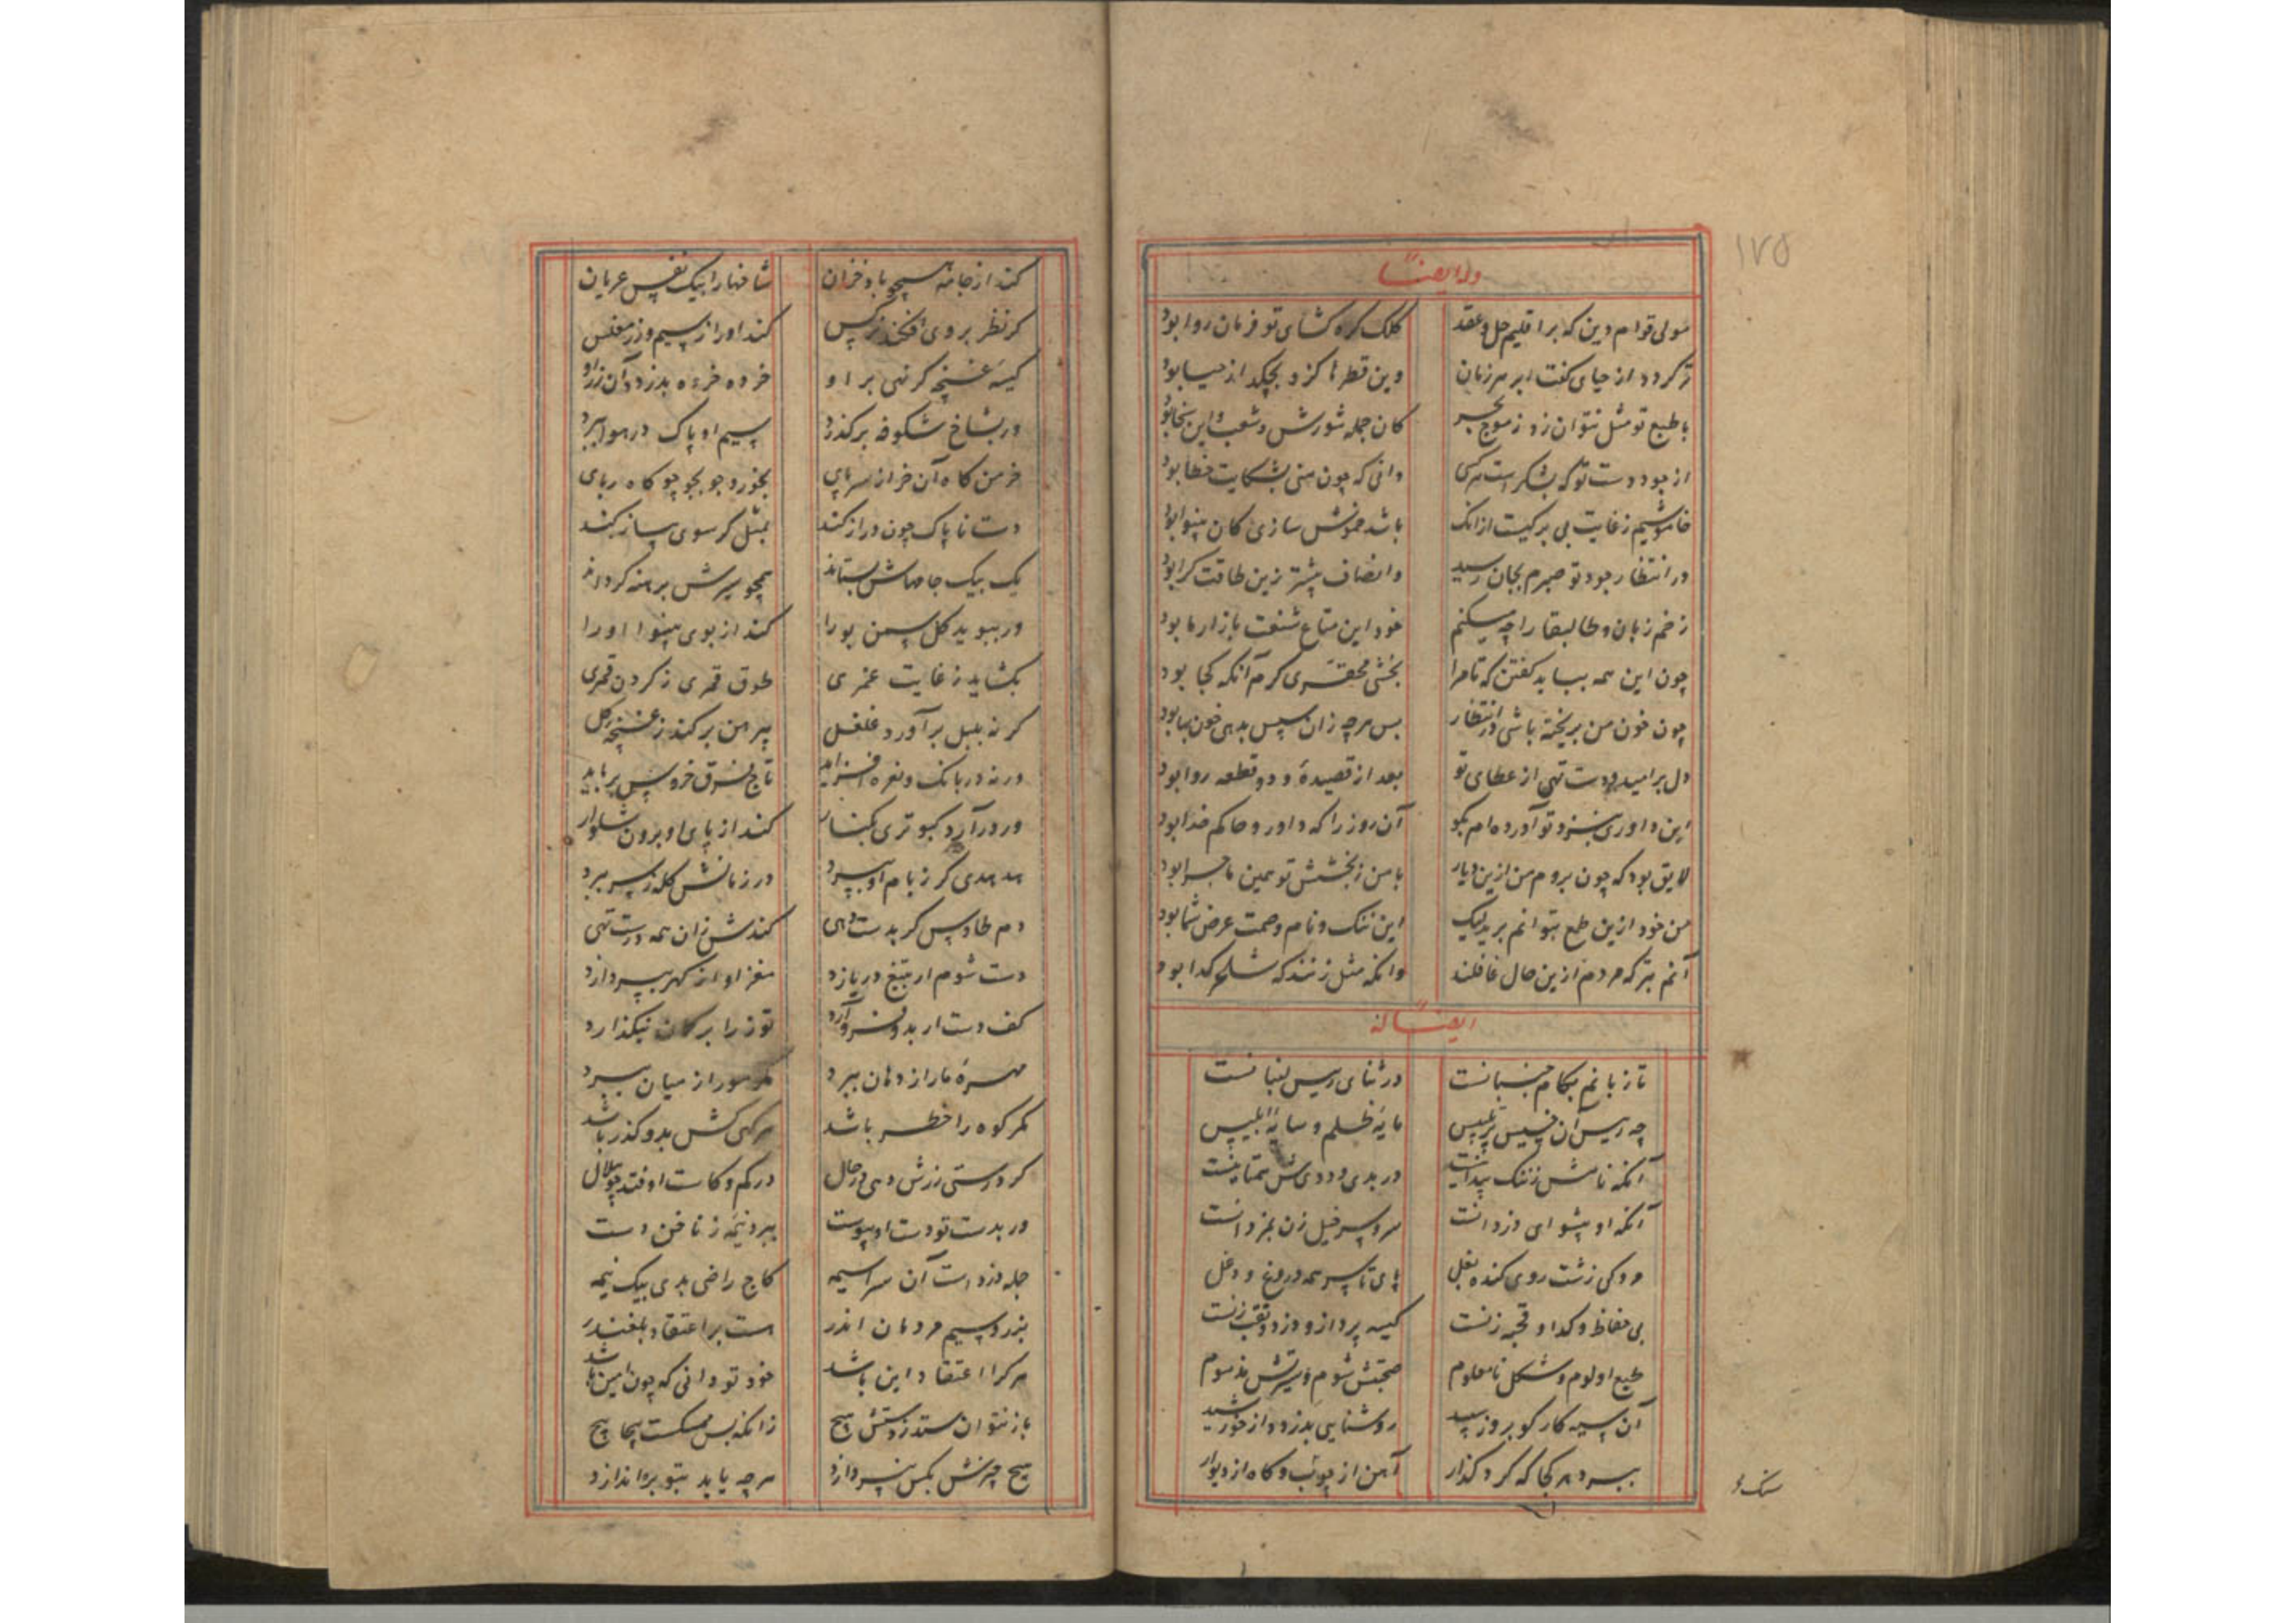 ۱۷۵
وله ایضاً
مولی قوام دین که بر اقلیم حل و عقد کلک کره کشای تو فرمان روا بود
تر کردد از حیای کفت ابر هر زمان وین قطرها کزو بچکد از حیا بود
با طبع تو مثل نتوان زد ز موج بحر کان جمله شورش و شغب و این سخا بود
از جود دست تو که بشکر است هر کسی دانی که چون منی بشکایت خطا بود
خاموشیم ز غایت بی برکیست ازانک باشد خموش سازی کان بینوا بود
در انتظار جود تو صبرم بجان رسید و انصاف بیشتر زین طاقت کرا بود
زخم زبان و طالبقا را چه میکنم خود این متاع شنعت بازار ما بود
چون این همه بباید کفتن که تا مرا بخشی محقری کرم آنکه کجا بود
چون خون من بریخته باشی در انتظار بس هر چه زان سپس بدهی خون بها بود
دل بر امید و دست تهی از عطای تو بعد از قصیدهٔ و دو قطعه روا بود
این داوری بنزد تو آورده ام بکو آن روز را که داور و حاکم خدا بود
لایق بود که چون بروم من ازین دیار با من ز بخشش تو همین ماجرا بود
من خود ازین طمع بتوانم برید لیک این ننک و نام و صمت عرض شما بود
آنم بتر که مردم ازین حال غافلند وانکه مثل زنند که شلحم کدا بود
ایضاً له
تا زبانم بکام جنبانست در ثنای رییس لنبانست
چه رییس آن خسیس پر تلبیس مایهٔ ظلم و سایهٔ ابلیس
آنکه نامش ز ننک پیدا نیست در بدی و ددی ش همتا نیست
آنکه او پیشوای دزدانست سر و سرخیل زن بمزدانست
مردکی زشت روی کنده بغل پای تا سر همه دروغ و دغل
بی حفاظ و کدا و قحبه زنست کیسه پرداز و دزد و نقب زنست
طبع او لوم و شکل نامعلوم صحبتش شوم و سیرتش مذموم
آن سیه کار کو بروز سپید روشنایی بدزدد از خورشید
ببرد هر کجا که کرد کذار آهن از چوب و کاه از دیوار
کند از جامه همچو باد خزان شاخها را بیک نفس عریان
کر نظر بر وی افکند نرکس کند او را ز سیم و زر مفلس
کیسهٔ غنچه کر نهی بر او خرده خرده بدزدد آن زر او
ور بشاخ شکوفه بر کذرد سیم او پاک در هوا ببرد
خرمن کاه آن خر از سر پای بخورد جو بجو چو کاه ربای
دست ناپاک چون دراز کند بمثل کر سوی پیاز کند
یک بیک جامهاش بستاند همچو سیرش برهنه کرداند
ور ببوید کل سمن بو را کند از بوی بینوا او را
بکشاید ز غایت غمری طوق قمری ز کردن قمری
کر نه بلبل بر آورد غلغل پیرهن بر کند ز غنچه کل
ور نه در بانک و نعره افزاید تاج فرق خروس برباید
ور در آرد کبوتری بکنار کند از پای او برون شلوار
هدهدی کر ز بام او بپرد در زمانش کله ز سر ببرد
دم طاوس کر بدست دهی کندش زان همه درست تهی
دست شوم ار بتیغ در یازد مغز او از کهر بپردازد
کف دست ار بدو فرو آرد توز را بر کمان نیکذارد
مهرهٔ مار از دهان ببرد کمر مور از میان ببرد
کمر کوه را خطر باشد هر کهی کش بدو کذر باشد
کر درستی زرش دهی در حال در کم و کاست اوفتد چو هلال
ور بدست تو دست او پیوست ببرد نیمهٔ ز ناخن دست
جمله دزد است آن سراسیمه کاج راضی بدی بیک نیمه
بزر و سیم مردمان اندر هست بر اعتقاد بلغندر
هر کرا اعتقاد این باشد خود تو دانی که چون امین باشد
باز نتوان ستد ز دستش هیچ زانکه بس ممسکست پیچا پیچ
هیچ چیزش بکس نپردازد هر چه یابد بتو براندازد